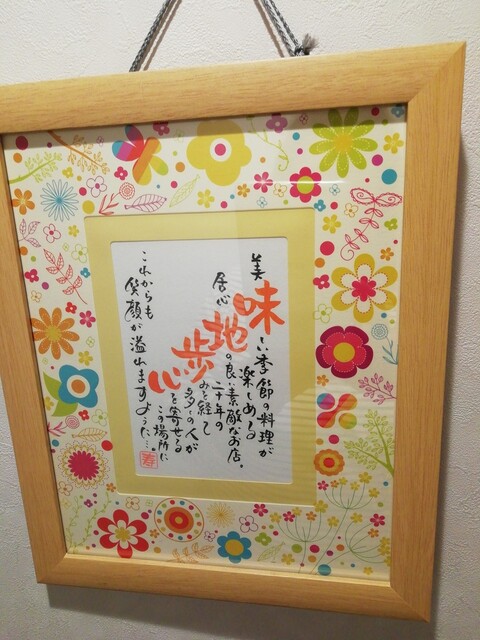 美味しい季節の料理が
楽しめる
居心地の良い素敵なお店。
二十年の
歩みを経て
多くの人が
心を寄せる
この場所に
これからも
笑顔が溢れますように…
寿